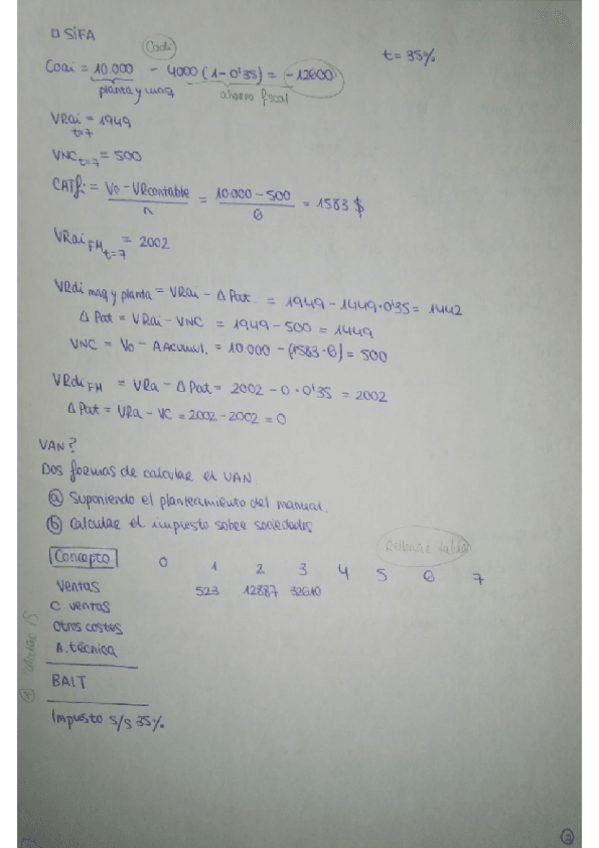 □ SIFA
Cadi
t = 35%
Coai = 10.000 - 4000 (1-0'35) = -12600
planta y maq
ahorro fiscal
VRai t=7 = 1949
VNC t=7 = 500
CATfi = Vo - VRcontable / n = 10000 - 500 / 6 = 1583 $
VRai FM t=7 = 2002
VRdi maq y planta = VRai - Δ Pat. = 1949 - 1449·0'35 = 1442
Δ Pat = VRai - VNC = 1949 - 500 = 1449
VNC = Vo - AAcumul. = 10.000 - (1583·6) = 500
VRdi FM = VRa - Δ Pat = 2002 - 0 · 0'35 = 2002
Δ Pat = VRa - VC = 2002 - 2002 = 0
VAN?
Dos formas de calcular el VAN
ⓐ Suponiendo el planteamiento del manual.
ⓑ Calcular el impuesto sobre sociedades
Rellenar tabla
Concepto 0 1 2 3 4 5 6 7
Ventas 523 12887 32610
C ventas
Otros costes
A. técnica
BAIT
Impuesto S/S 35%